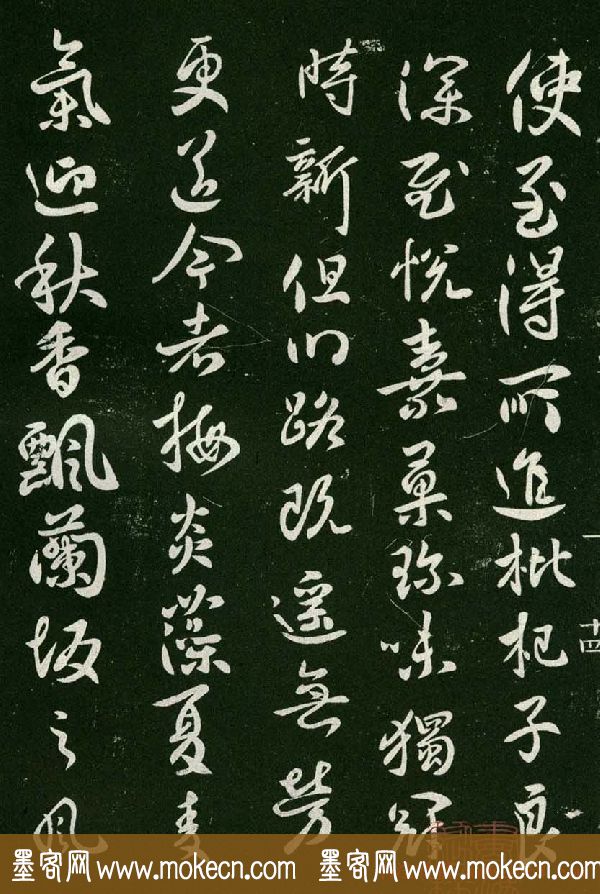 使至得所進枇杷子良
深慰悦嘉菓珎味獨冠
時新但川路既遥無勞
更送今者梅炎藻夏麦
氣迎秋香飄蘭坂之風
十四
墨客网 www.mokecn.com 墨客网 www.mokecn.com